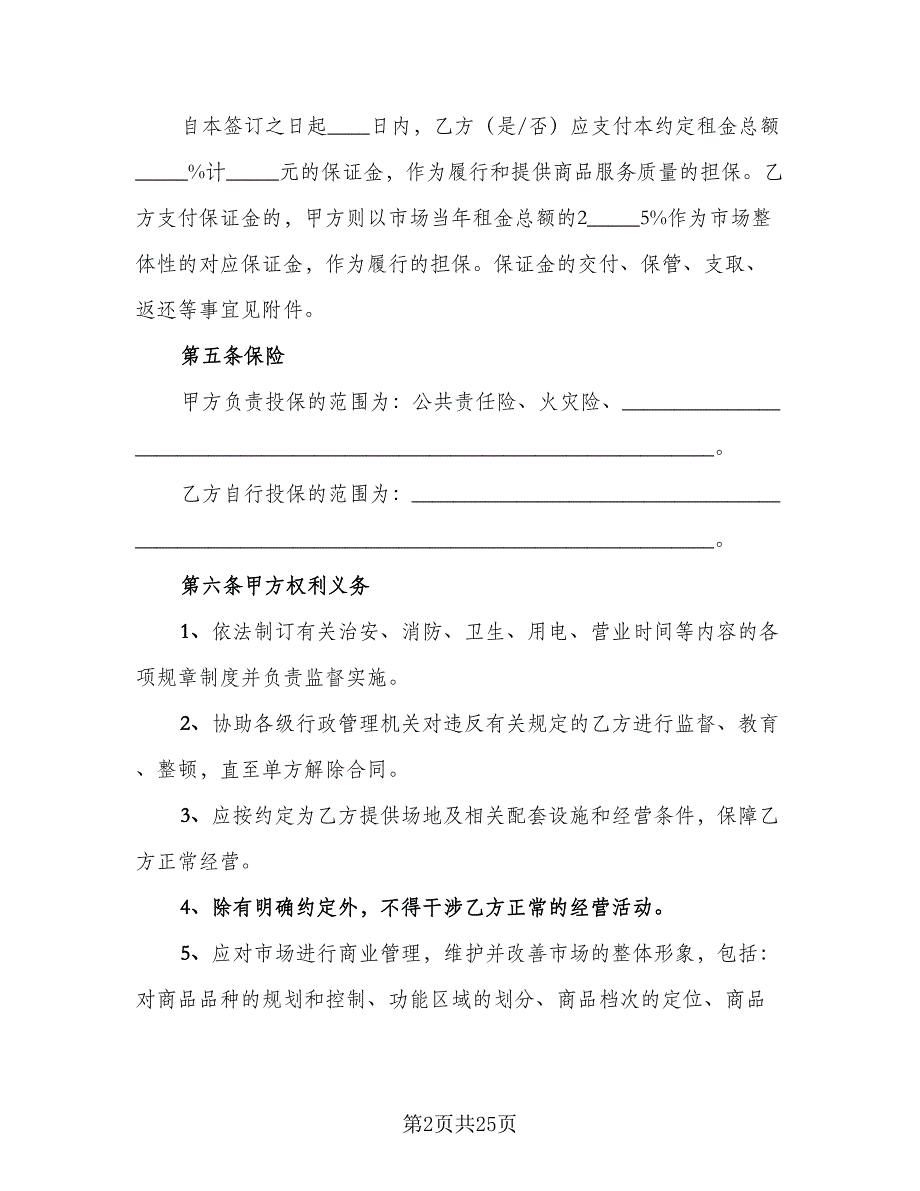 自本签订之日起____日内，乙方（是/否）应支付本约定租金总额
_____%计_____元的保证金，作为履行和提供商品服务质量的担保。乙
方支付保证金的，甲方则以市场当年租金总额的2_____5%作为市场整
体性的对应保证金，作为履行的担保。保证金的交付、保管、支取、
返还等事宜见附件。
第五条保险
甲方负责投保的范围为：公共责任险、火灾险、_______________
_______________________________________________________。
乙方自行投保的范围为：___________________________________
_______________________________________________________。
第六条甲方权利义务
1、依法制订有关治安、消防、卫生、用电、营业时间等内容的各
项规章制度并负责监督实施。
2、协助各级行政管理机关对违反有关规定的乙方进行监督、教育
、整顿，直至单方解除合同。
3、应按约定为乙方提供场地及相关配套设施和经营条件，保障乙
方正常经营。
4、除有明确约定外，不得干涉乙方正常的经营活动。
5、应对市场进行商业管理，维护并改善市场的整体形象，包括：
对商品品种的规划和控制、功能区域的划分、商品档次的定位、商品
第2页共25页